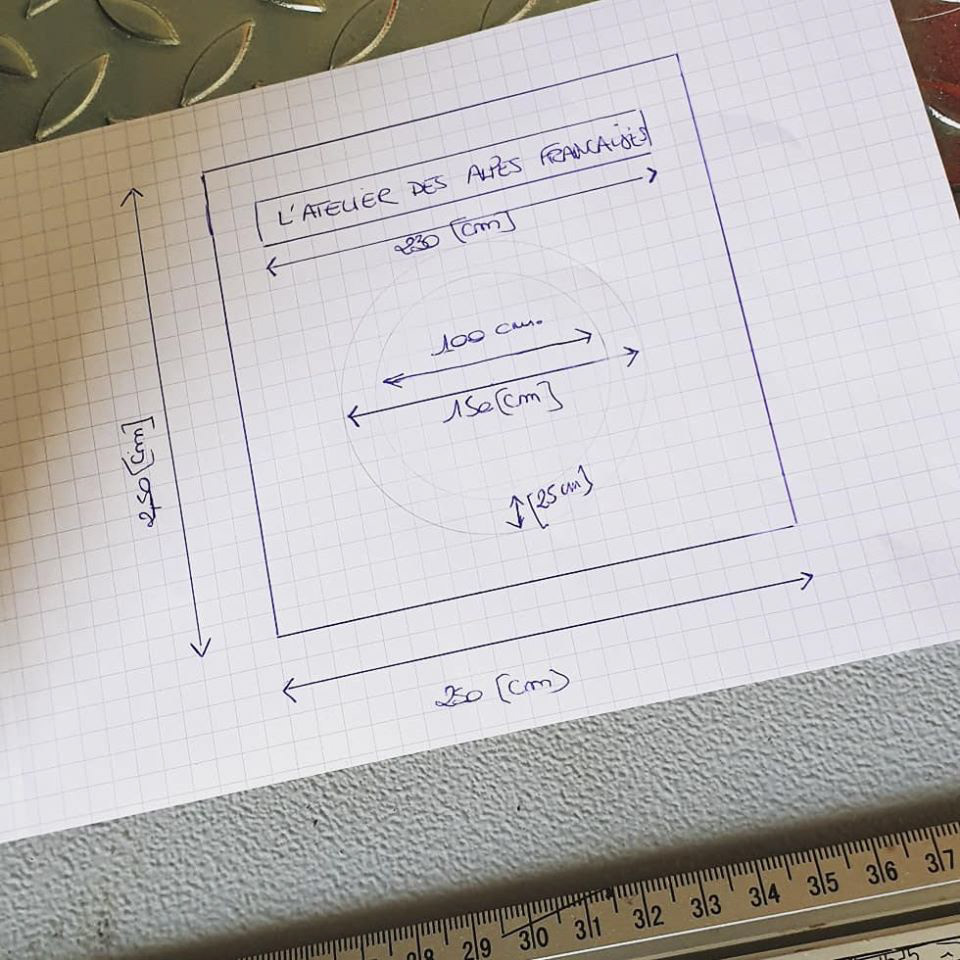 L'ATELIER DES ALPES FRANCAISES
230 [cm]
100 cm.
150 [cm]
250 [cm]
[25 cm]
250 [cm]
28 29 30 31 32 33 34 35 36 37